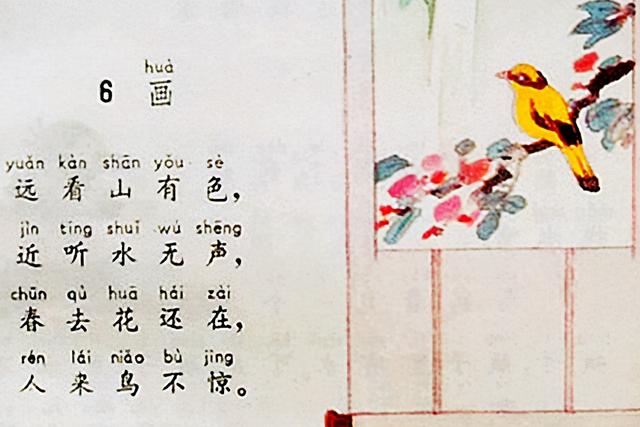 huà
6 画
yuǎn kàn shān yǒu sè
远看山有色，
jìn tīng shuǐ wú shēng
近听水无声，
chūn qù huā hái zài
春去花还在，
rén lái niǎo bù jīng
人来鸟不惊。